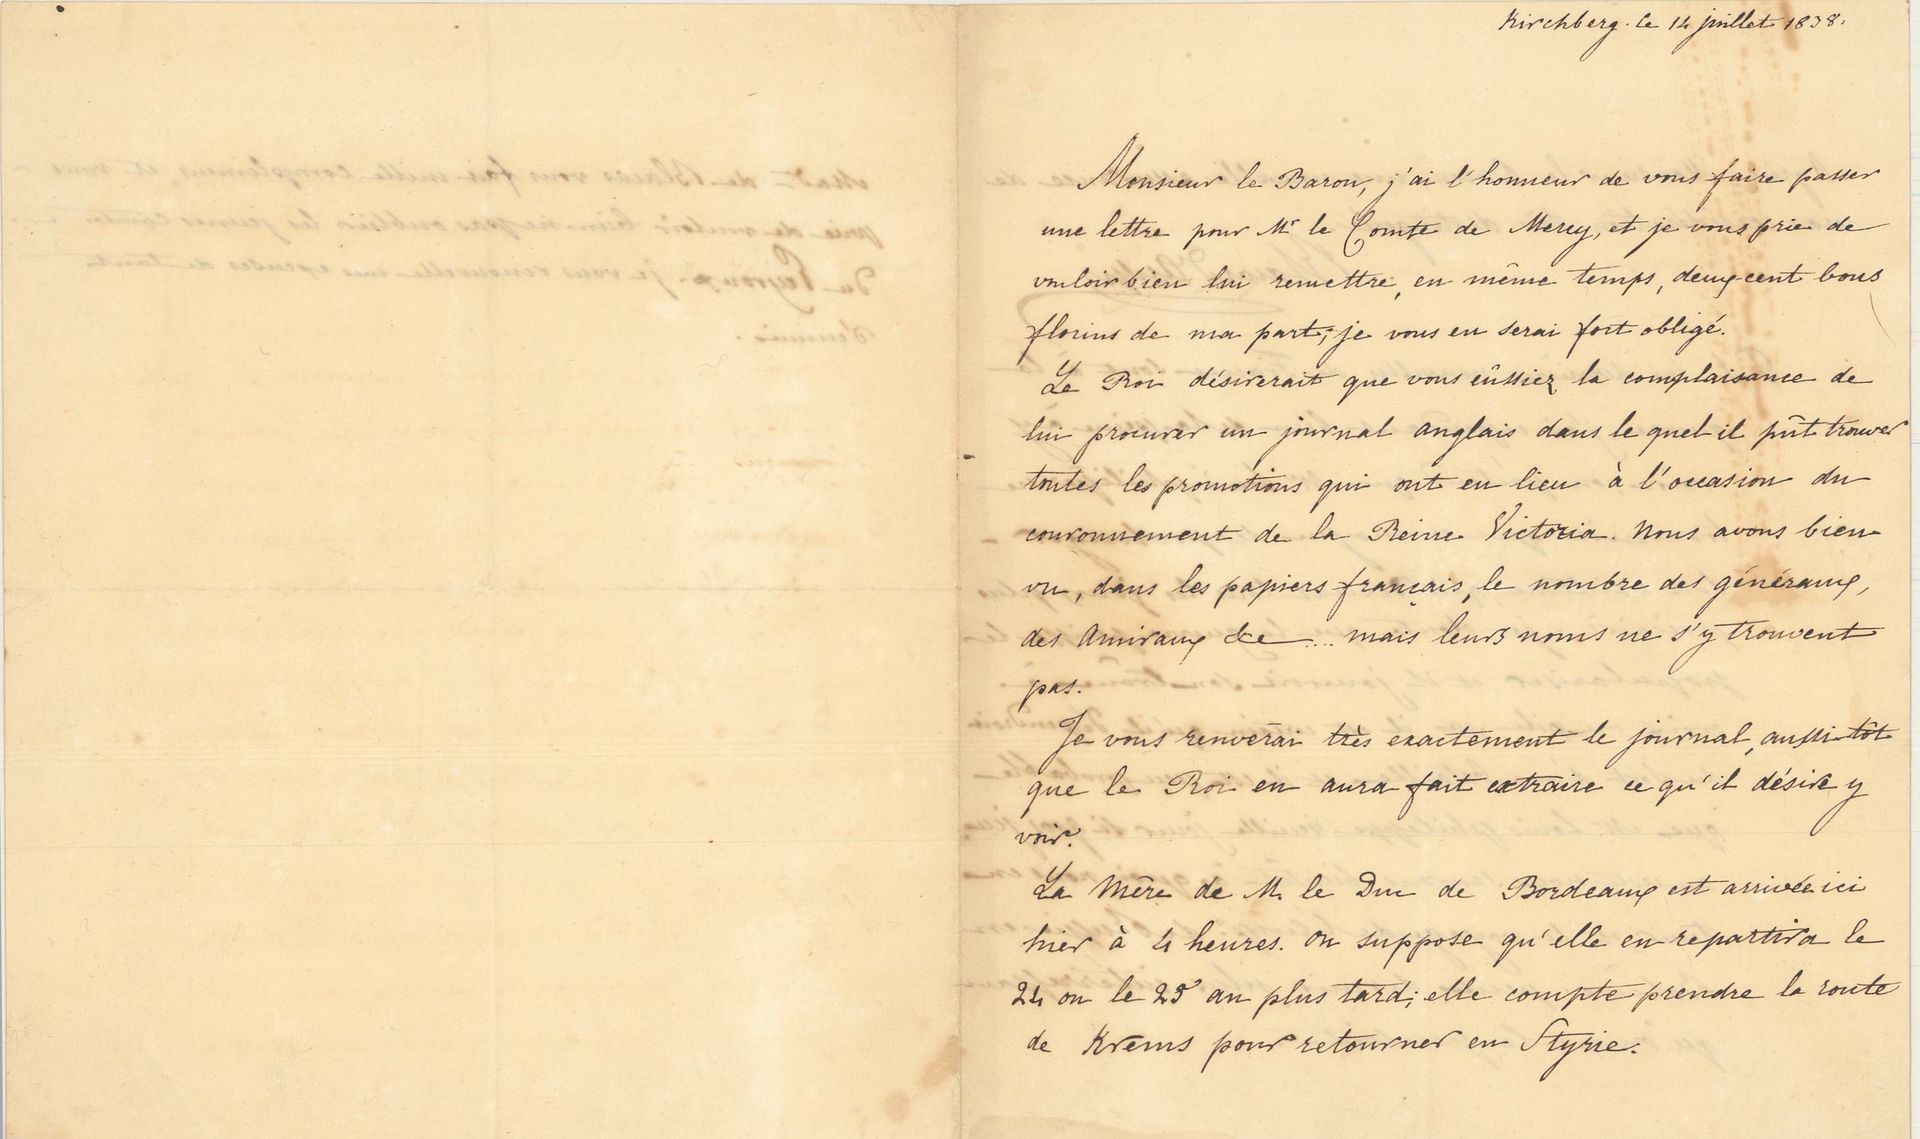 Kirchberg. le 14 juillet 1838.
Monsieur le Baron, j'ai l'honneur de vous faire passer
une lettre pour Mr le Comte de Mercy, et je vous prie de
vouloir bien lui remettre, en même temps, deux-cent bons
florins de ma part; je vous en serai fort obligé.
Le Roi désirerait que vous eûssiez la complaisance de
lui procurer un journal anglais dans le quel il pût trouver
toutes les promotions qui ont eu lieu à l'occasion du
couronnement de la Reine Victoria. Nous avons bien
vu, dans les papiers français, le nombre des généraux,
des Amiraux &c .... mais leurs noms ne s'y trouvent
pas.
Je vous renverai très exactement le journal, aussitôt
que le Roi en aura fait extraire ce qu'il désire y
voir.
La Mère de M. le Duc de Bordeaux est arrivée ici
hier à 4 heures. On suppose qu'elle en repartira le
24 ou le 25 au plus tard; elle compte prendre la route
de Krems pour retourner en Styrie.